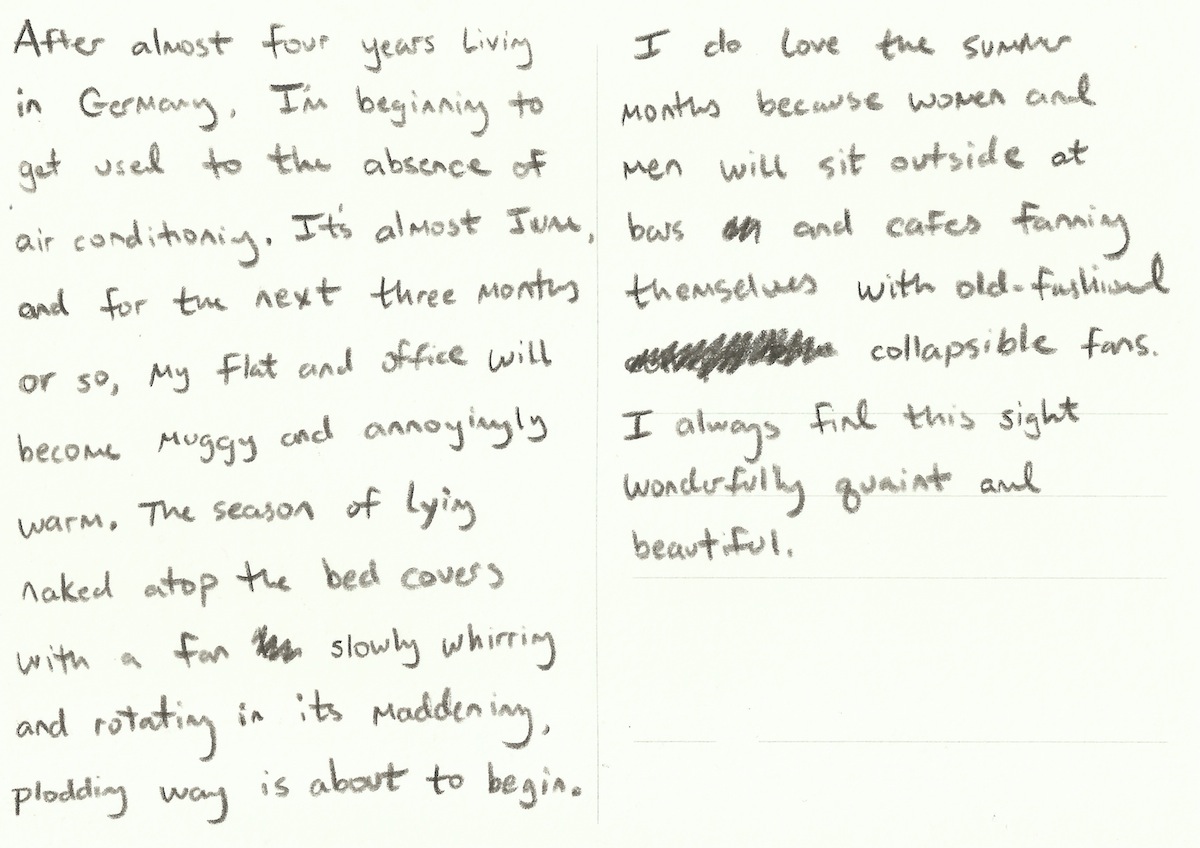 After almost four years living
in Germany, I'm beginning to
get used to the absence of
air conditioning. It's almost June,
and for the next three months
or so, my flat and office will
become muggy and annoyingly
warm. The season of lying
naked atop the bed covers
with a fan slowly whirring
and rotating in its maddening,
plodding way is about to begin.
I do love the summer
months because women and
men will sit outside at
bars and cafes fanning
themselves with old-fashioned
collapsible fans.
I always find this sight
wonderfully quaint and
beautiful.